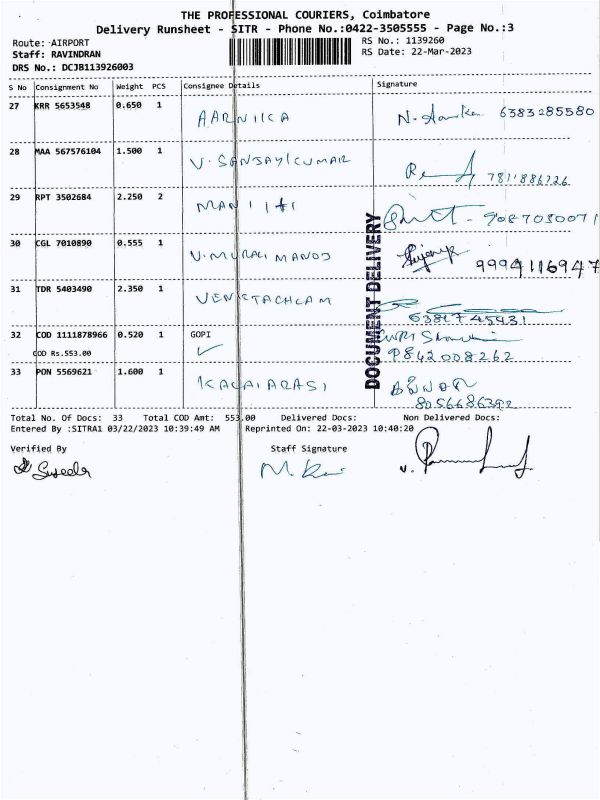 THE PROFESSIONAL COURIERS, Coimbatore
Delivery Runsheet - SITR - Phone No.:0422-3505555 - Page No.:3
Route: AIRPORT
RS No.: 1139260
Staff: RAVINDRAN
RS Date: 22-Mar-2023
DRS No.: DCJB113926003
S No Consignment No Weight PCS Consignee Details Signature
27 KRR 5653548 0.650 1 AARNIKA 6383285580
28 MAA 567576104 1.500 1 V. SANJAYKUMAR 7811886726
29 RPT 3502684 2.250 2 9087030071
30 CGL 7010890 0.555 1 V.MURALI MANOJ 9994116947
31 TDR 5403490 2.350 1 VENKTACHLAM
32 COD 1111878966 0.520 1 GOPI
COD Rs.553.00 9842008262
33 PON 5569621 1.600 1 KALAIARASI
8056686392
DOCUMENT DELIVERY
Total No. Of Docs: 33 Total COD Amt: 553.00 Delivered Docs: Non Delivered Docs:
Entered By :SITRA1 03/22/2023 10:39:49 AM Reprinted On: 22-03-2023 10:40:20
Verified By Staff Signature